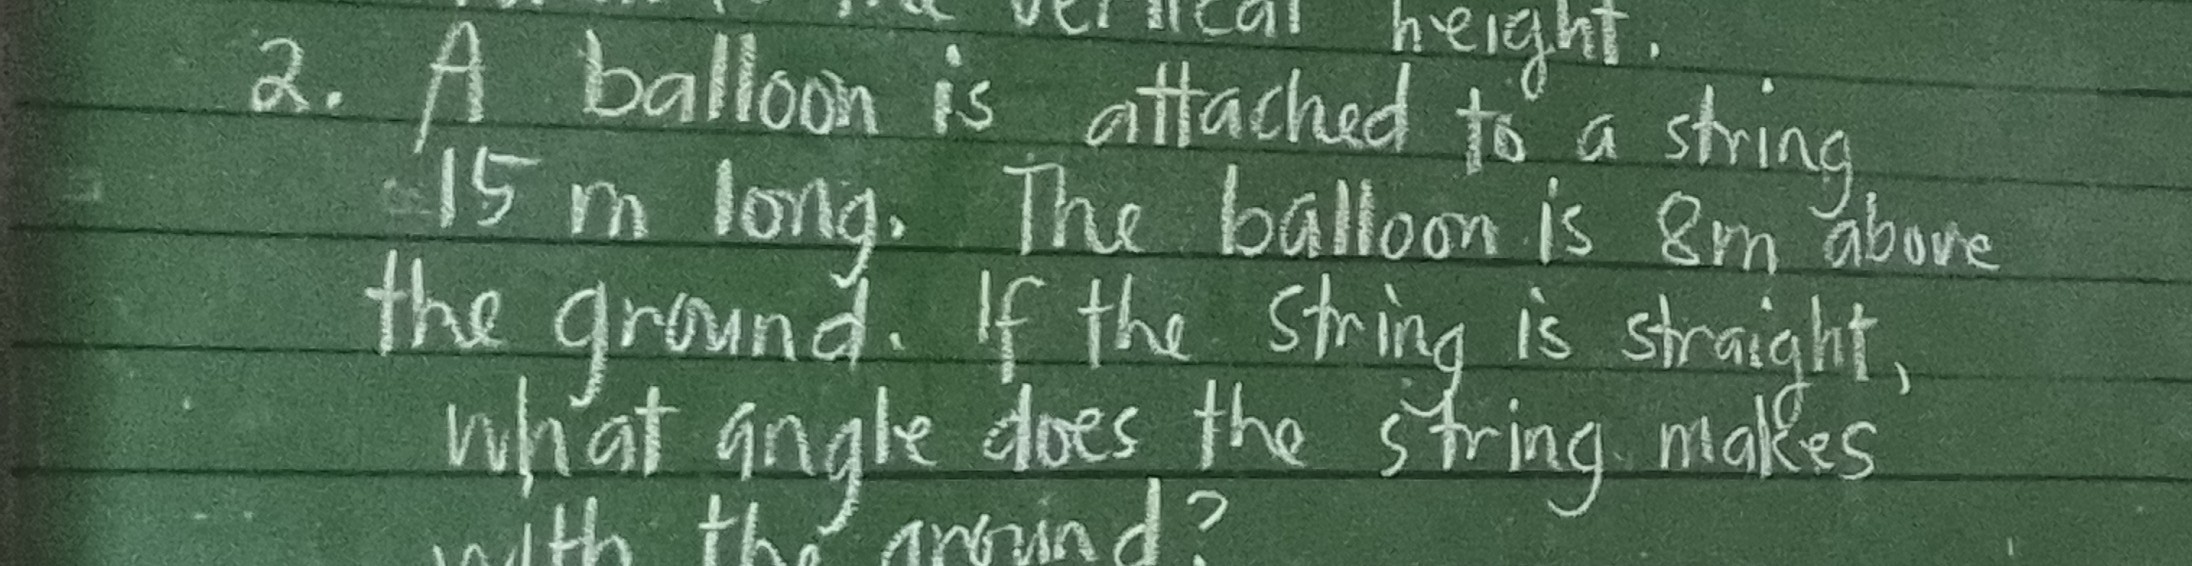 the vertical height.
2. A balloon is attached to a string
15 m long. The balloon is 8m above
the ground. If the string is straight,
what angle does the string makes
with the ground?